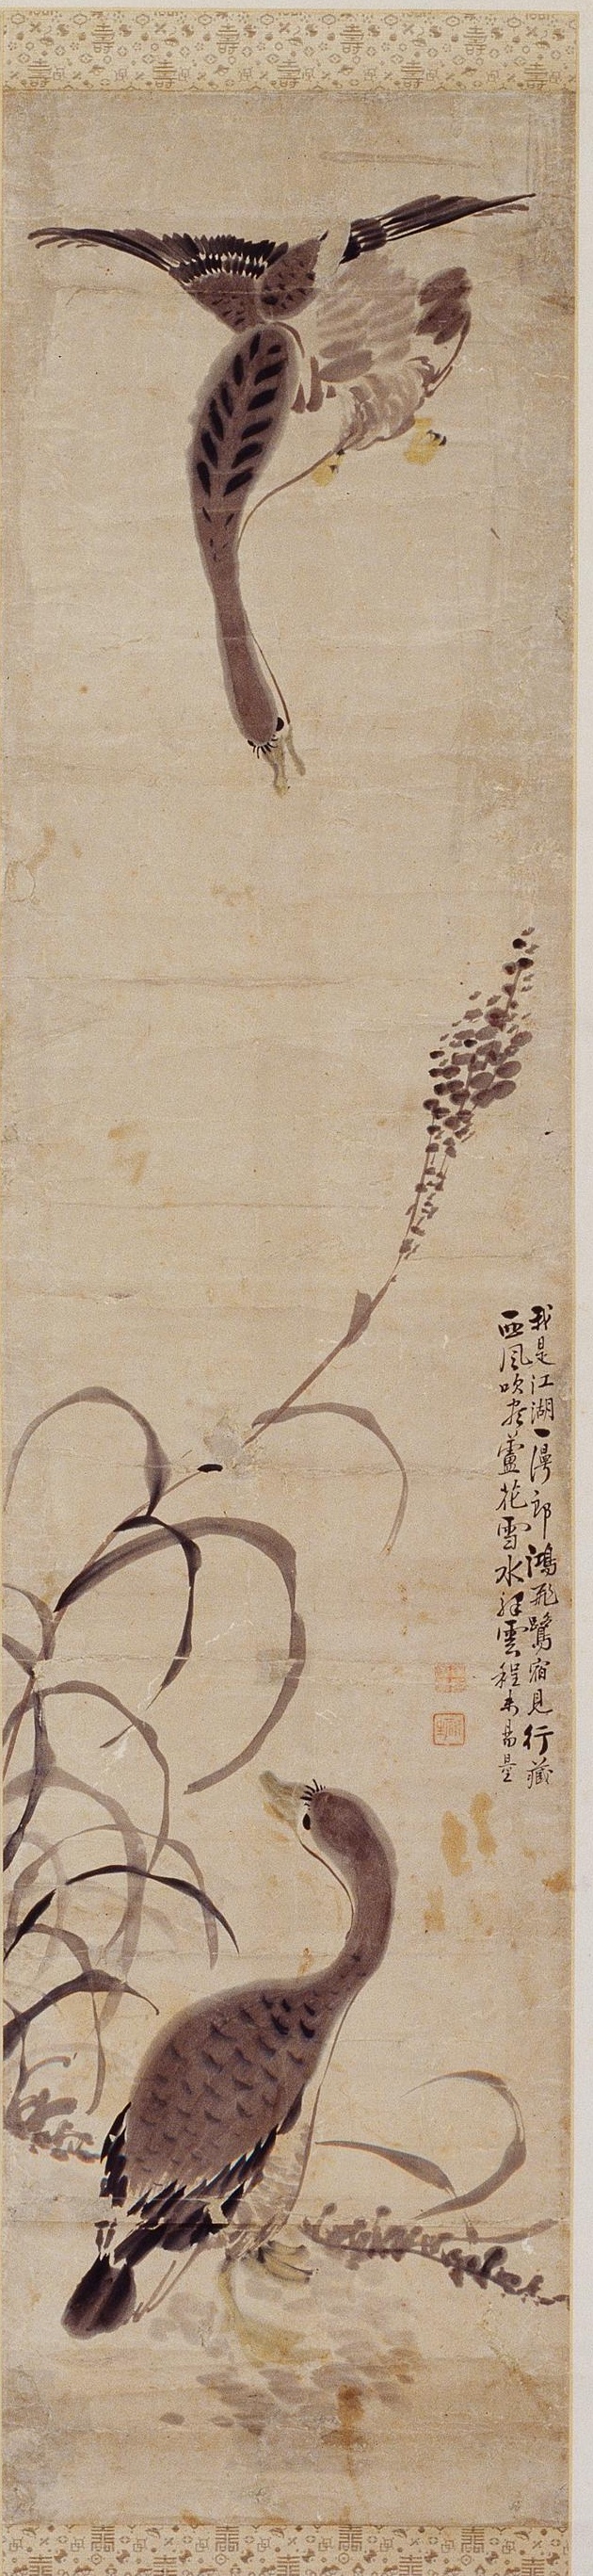 我是江湖一漫郎鴻飛鷺宿見行藏
西風吹老蘆花雪水紅雲程未易量